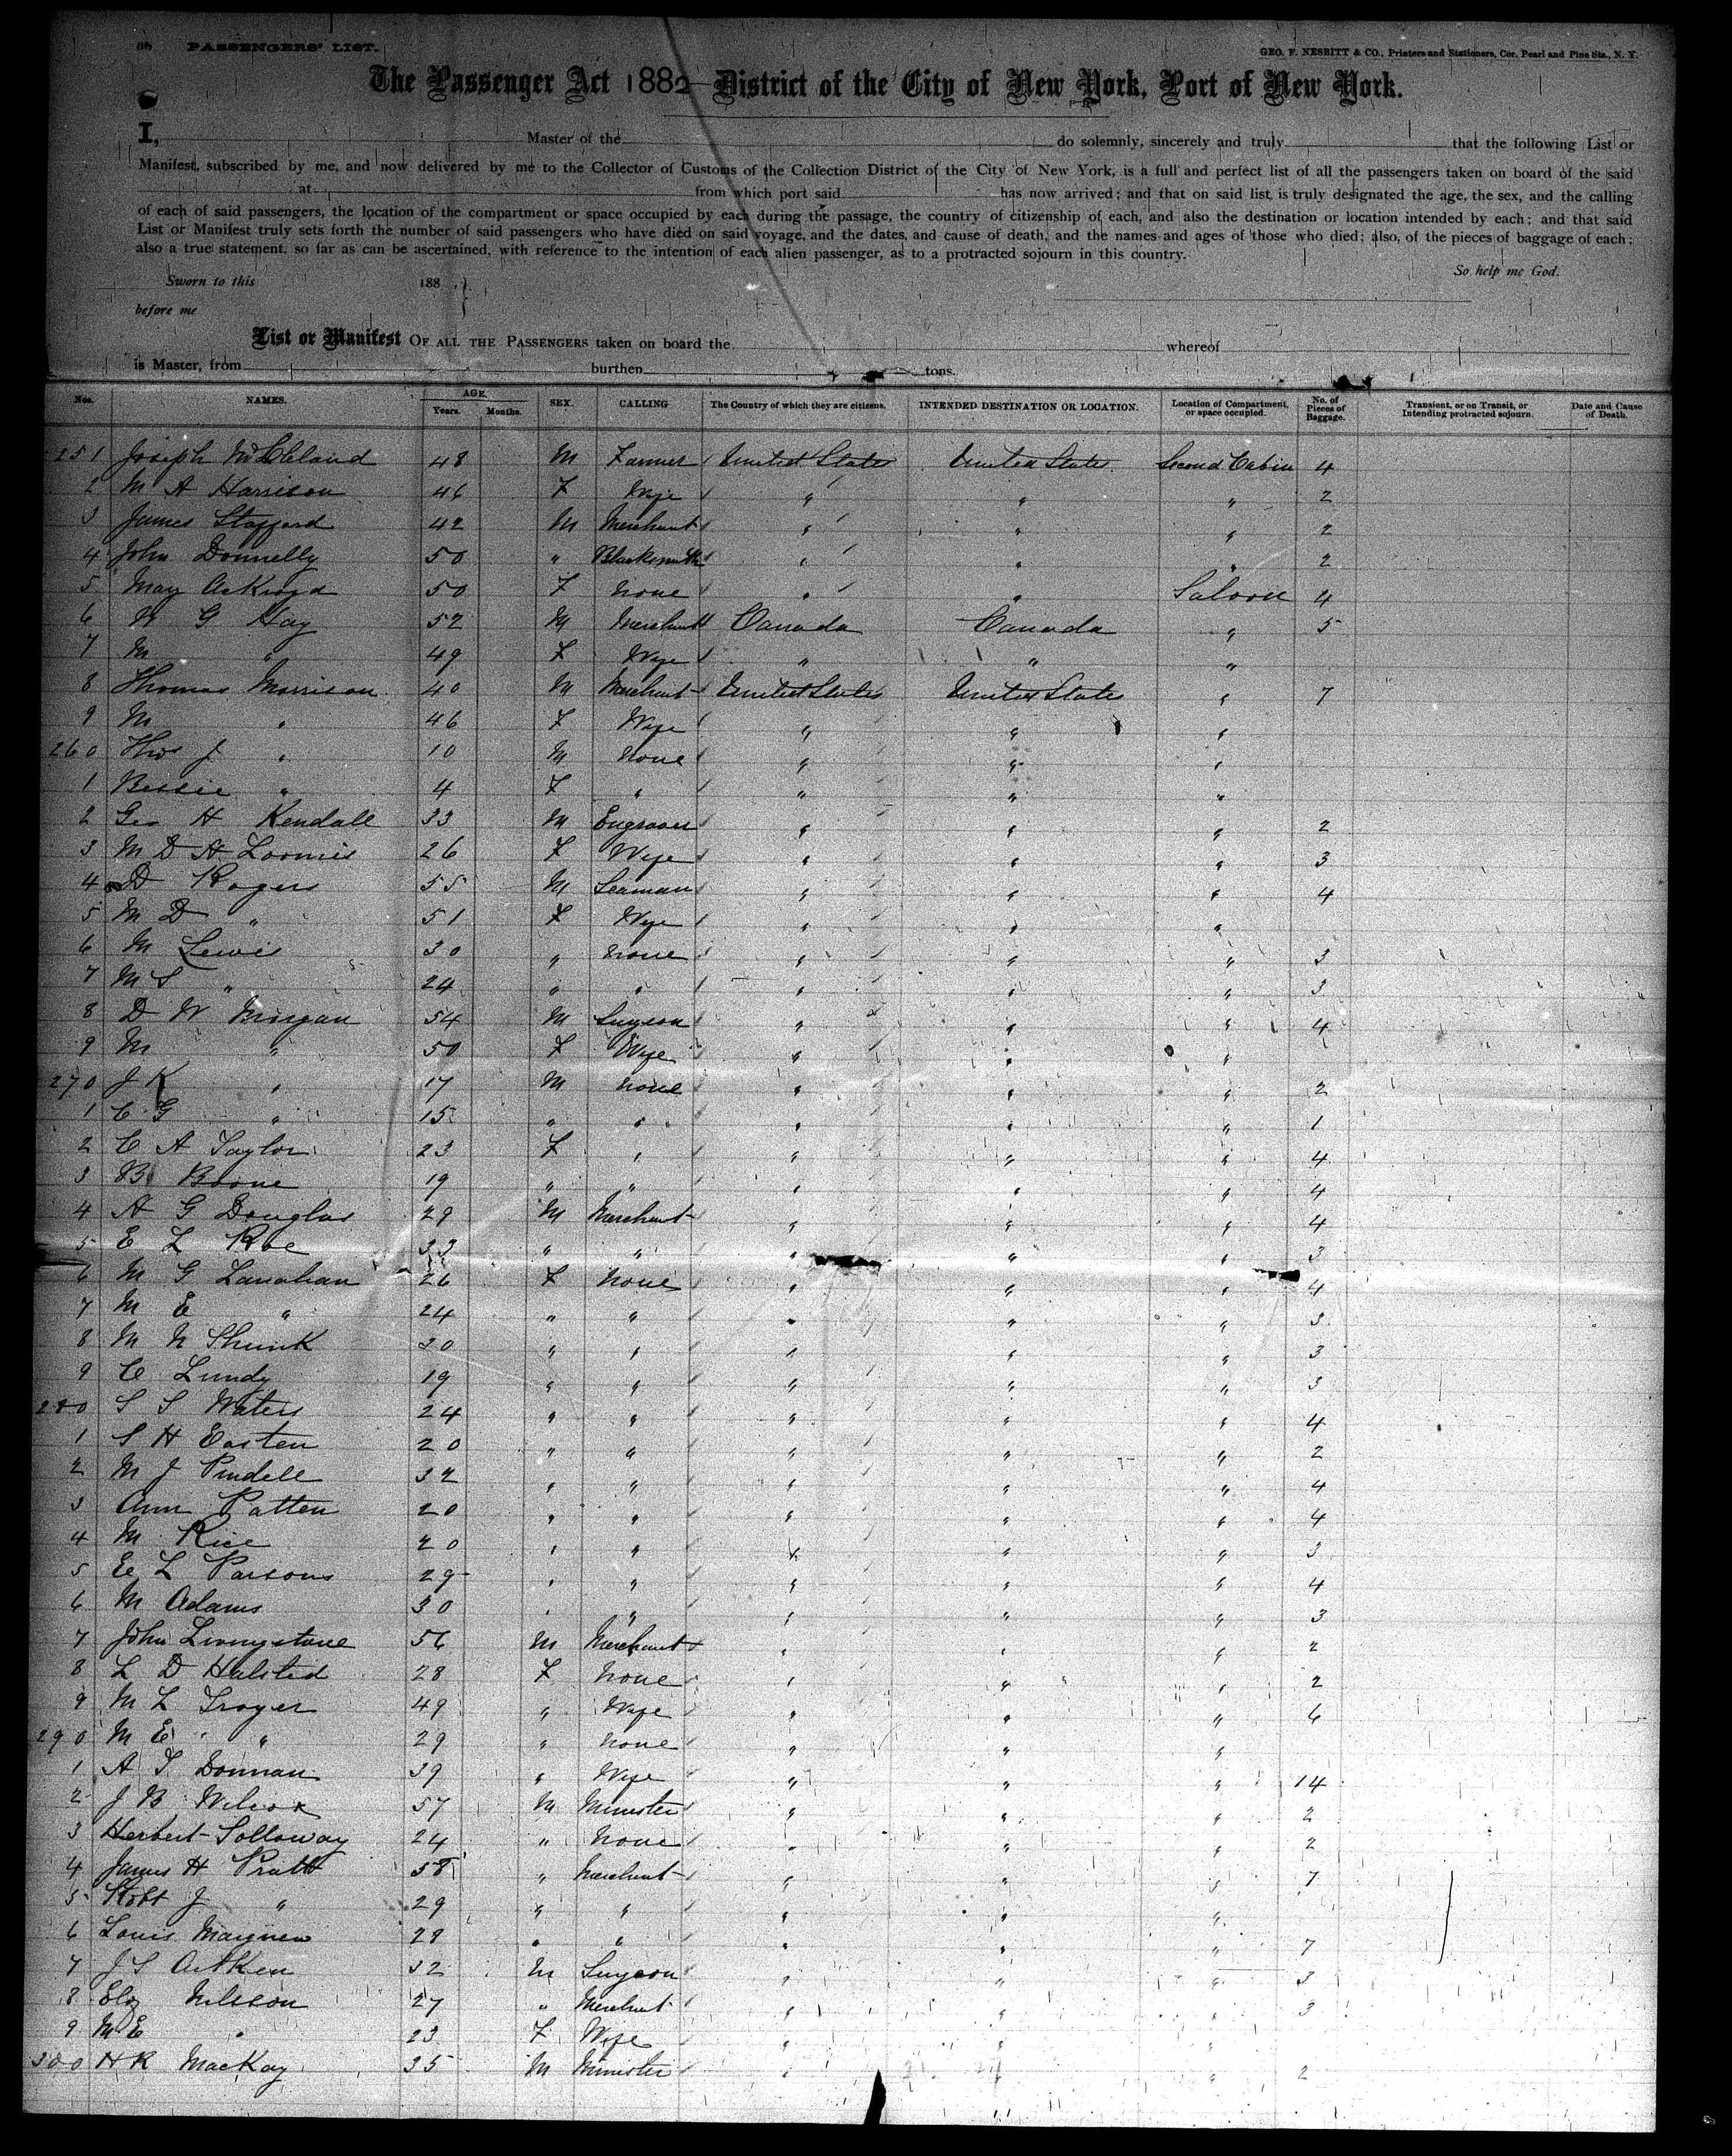 PASSENGERS' LIST.
GEO. F. NESBITT & CO., Printers and Stationers, Cor. Pearl and Pine Sts., N. Y.
The Passenger Act 1882 District of the City of New York, Port of New York.
I, Master of the do solemnly, sincerely and truly that the following List or
Manifest, subscribed by me, and now delivered by me to the Collector of Customs of the Collection District of the City of New York, is a full and perfect list of all the passengers taken on board of the said
at from which port said has now arrived; and that on said list is truly designated the age, the sex, and the calling
of each of said passengers, the location of the compartment or space occupied by each during the passage, the country of citizenship of each, and also the destination or location intended by each; and that said
List or Manifest truly sets forth the number of said passengers who have died on said voyage, and the dates, and cause of death, and the names and ages of those who died; also, of the pieces of baggage of each;
also a true statement, so far as can be ascertained, with reference to the intention of each alien passenger, as to a protracted sojourn in this country.
So help me God.
Sworn to this 188
before me
List or Manifest OF ALL THE PASSENGERS taken on board the whereof
is Master, from burthen tons.
Nos. NAMES. AGE. Years. Months. SEX. CALLING The Country of which they are citizens. INTENDED DESTINATION OR LOCATION. Location of Compartment, or space occupied. No. of Pieces of Baggage. Transient, or on Transit, or Intending protracted sojourn. Date and Cause of Death.
251 Joseph McCleland 48 M Farmer United States United States Second Cabin 4
2 M A Harrison 46 F Wife " " " 2
3 James Stafford 42 M Merchant " " " 2
4 John Donnelly 50 " Blacksmith " " " 2
5 May Ackroyd 50 F None " " Saloon 4
6 G Hay 52 M Merchant Canada Canada " 5
7 M " 49 F Wife " " "
8 Thomas Morrison 40 M Merchant United States United States " 7
9 M " 46 F Wife " " "
260 Thos J " 10 M None " " "
1 Bessie " 4 F " " " "
2 Geo H Kendall 33 M Engraver " " " 2
3 M D H Loomis 26 F Wife " " " 3
4 D Rogers 55 M Seaman " " " 4
5 M D " 51 F Wife " " "
6 M Lewis 30 " None " " " 3
7 M S " 24 " " " " " 3
8 D W Morgan 54 M Surgeon " " " 4
9 M " 50 F Wife " " "
270 J K " 17 M None " " " 2
1 C G " 15 " " " " " 1
2 C A Taylor 23 F " " " " 4
3 B Boone 19 " " " " " 4
4 A G Douglas 29 M Merchant " " " 4
5 E L Roe 33 " " " " " 3
6 M G Lanahan 26 F None " " " 4
7 M E " 24 " " " " " 3
8 M N Shunk 30 " " " " " 3
9 C Lundy 19 " " " " " 3
280 S S Waters 24 " " " " " 4
1 S H Easten 20 " " " " " 2
2 M J Pindell 32 " " " " " 4
3 Ann Patten 20 " " " " " 4
4 M Rice 20 " " " " " 3
5 E L Parsons 29 " " " " " 4
6 M Adams 30 " " " " " 3
7 John Livingstone 56 M Merchant " " " 2
8 L D Halsted 28 F None " " " 2
9 M L Troyer 49 " Wife " " " 6
290 M E " 29 " None " " "
1 A T Donnan 39 " Wife " " " 14
2 J B Wilcox 57 M Minister " " " 2
3 Herbert Solloway 24 " None " " " 2
4 James H Pratt 58 " Merchant " " " 7
5 Robt J " 29 " " " " "
6 Louis 28 " " " " " 7
7 J S Aitken 32 M Surgeon " " " 3
8 Nilsson 27 " Merchant " " " 3
9 M E " 23 F Wife " " "
300 H R MacKay 35 M Minister " " " 2